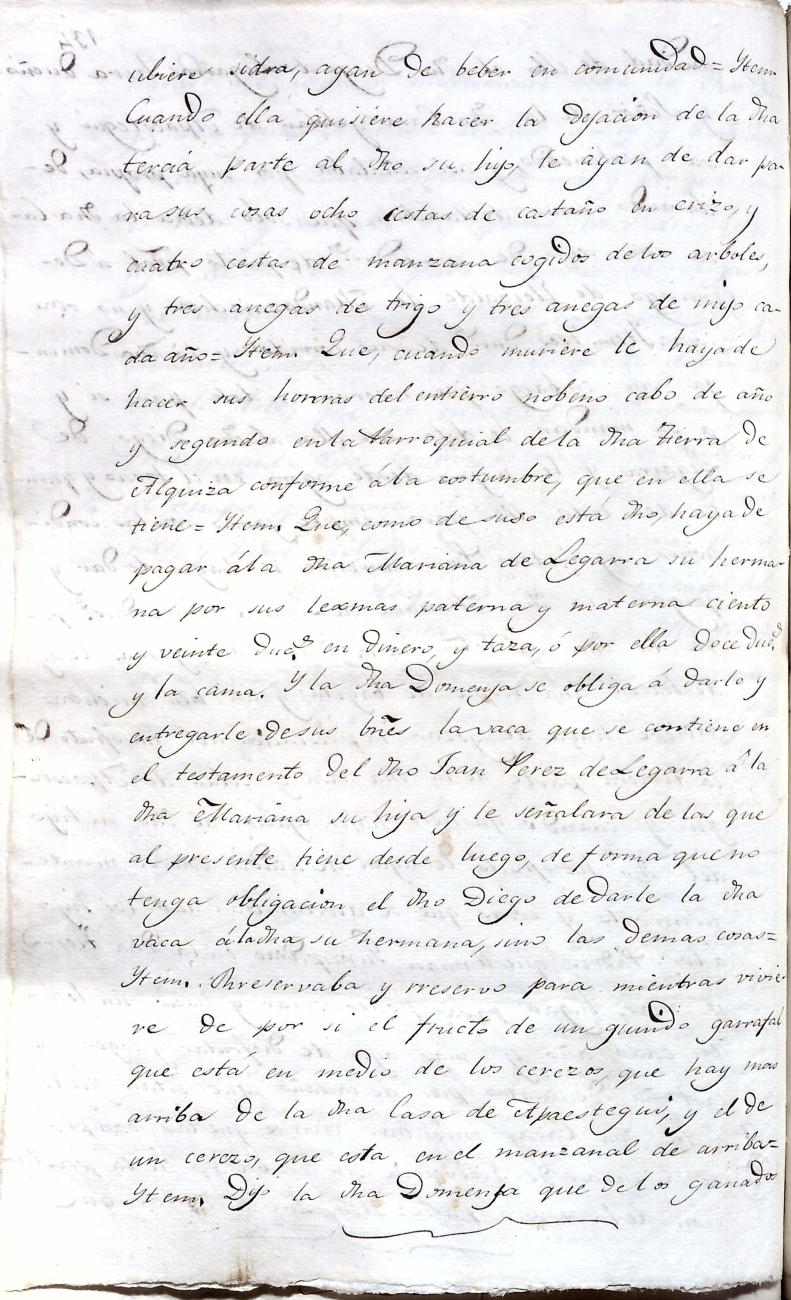 ubiere sidra, ayan de beber en comunidad = Ytem.
Cuando ella quisiere hacer la dejacion de la dha
tercia parte al dho su hijo, le ayan de dar pa-
ra sus cosas ocho cestas de castaño en erizo, y
cuatro cestas de manzana cogidos de los arboles,
y tres anegas de trigo y tres anegas de mijo ca-
da año = Ytem. Que, cuando muriere le haya de
hacer sus honrras del entierro nobeno cabo de año
y segundo en la Parroquial de la dha tierra de
Alquiza conforme á la costumbre, que en ella se
tiene = Ytem. Que, como de suso está dho, haya de
pagar á la dha Mariana de Legarra su herma-
na por sus lexmas paterna y materna ciento
y veinte duc.s en dinero, y taza, ó por ella doce duc.s
y la cama. Y la dha Domenja se obliga á darle y
entregarle de sus bñes la vaca que se contiene en
el testamento del dho Joan Perez de Legarra á la
dha Mariana su hija y le señalara de las que
al presente tiene desde luego, de forma que no
tenga obligacion el dho Diego de darle la dha
vaca á la dha su hermana, sino las demas cosas =
Ytem. Rreservaba y rreservo para mientras vivie-
re de por si el fructo de un guindo garrafal
que está en medio de los cerezos, que hay mas
arriba de la dha Casa de Apaestegui, y el de
un cerezo, que esta en el manzanal de arriba =
Ytem. Dijo la dha Domenja que de los ganados